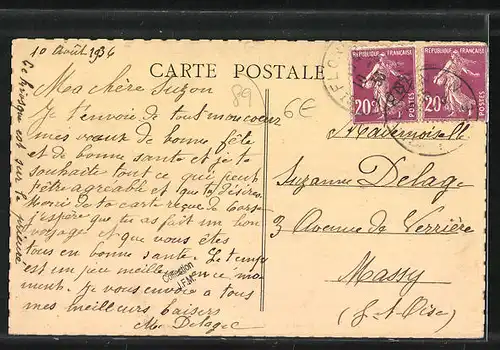 10 Août 1936
CARTE POSTALE
89
6€
Ma chère Suzon
Je t'envoie de tout mon coeur
mes voeux de bonne fête
et de bonne santé et je te
souhaite tout ce qui peut
t'être agréable et que tu désires.
Merci de ta carte reçue de
j'espère que tu as fait un bon
voyage et que vous êtes
tous en bonne santé. Le temps
est un peu meilleur en ce mo
ment. Je vous envoie à tous
mes meilleurs baisers
Me Delage
le kiosque est sur la
Collection
I.F.M.
REPUBLIQUE FRANÇAISE
20c
POSTES
REPUBLIQUE FRANÇAISE
20c
POSTES
Mademoiselle
Suzanne Delage
3 Avenue de Verrière
Massy
(S-et-Oise)